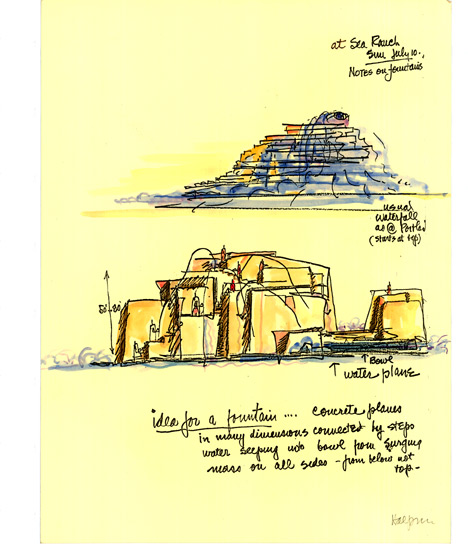 at Sea Ranch
Sun July 10.,
NOTES on fountains
usual
waterfall
as @ Portland
(starts at top)
50'-80'
↑ BOWL
↑ water plane
idea for a fountain .... concrete planes
in many dimensions connected by steps
water seeping into bowl from surging
mass on all sides - from below not
top -
Halprin